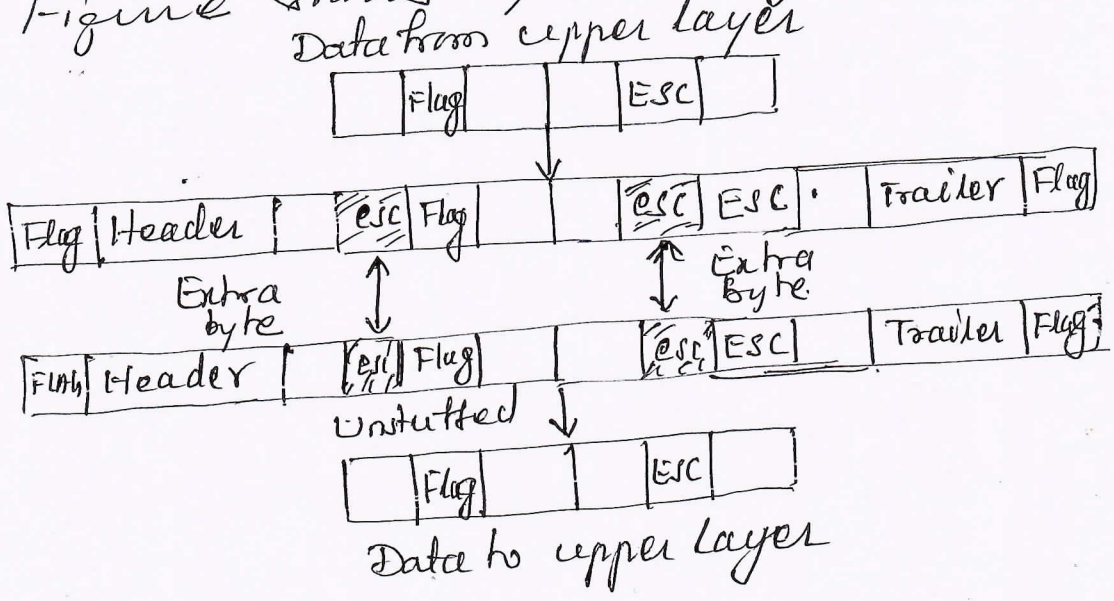 Figure
Data from upper layer
Flag ESC
Flag Header esc Flag esc ESC Trailer Flag
Extra byte
Extra Byte.
FLAG Header esc Flag esc ESC Trailer Flag
Unstuffed
Flag ESC
Data to upper layer